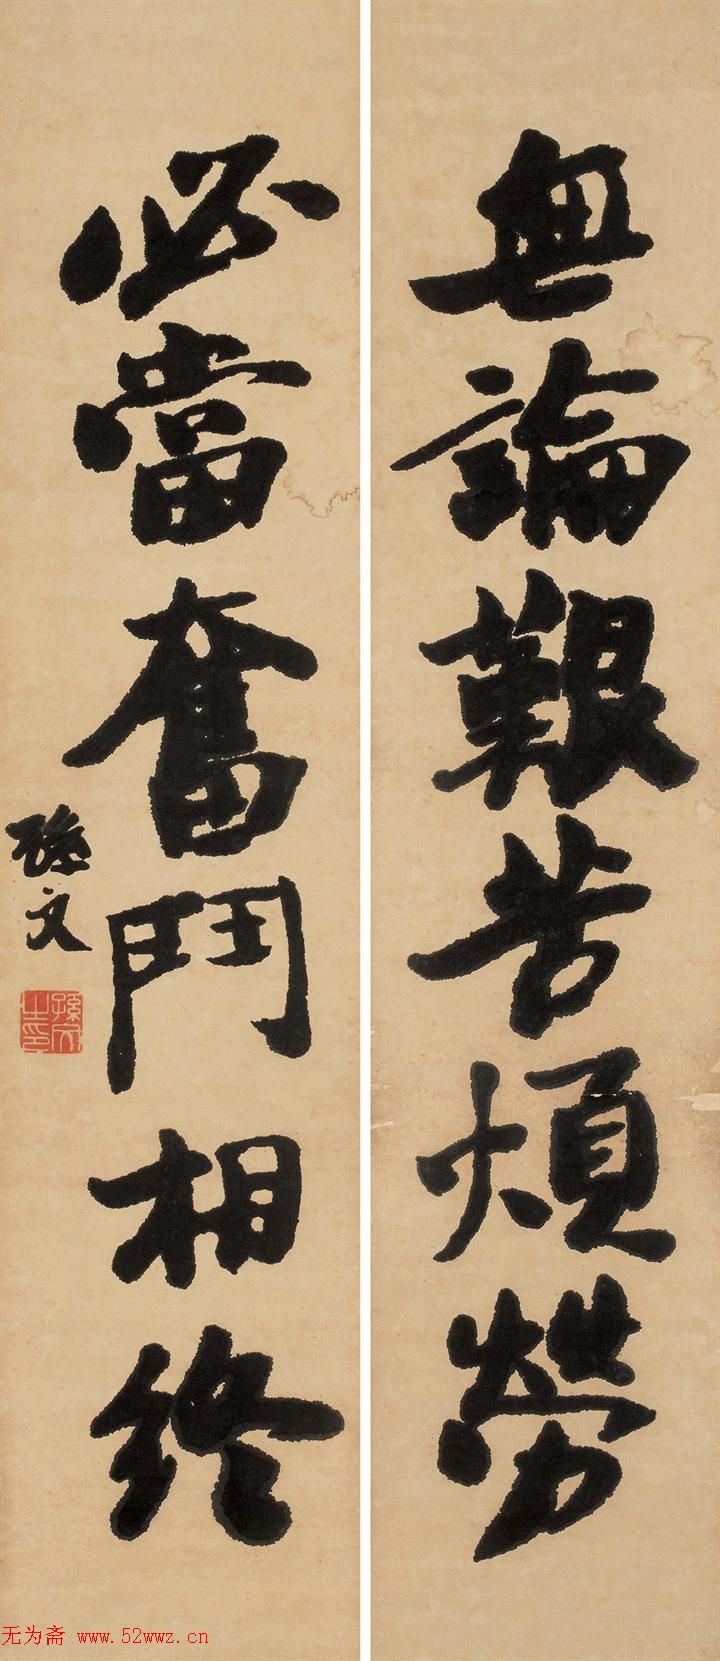 無論艱苦煩勞
必當奮鬥相終
孫文
孫文之印
无为斋 www.52wwz.cn